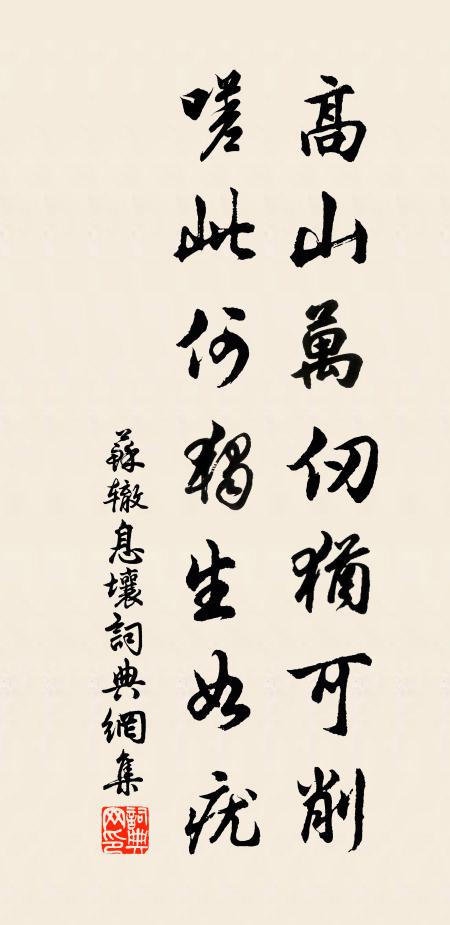 高山萬仞猶可削
嗟此何獨生如疣
蘇辙息壤詞典網集
詞典网印